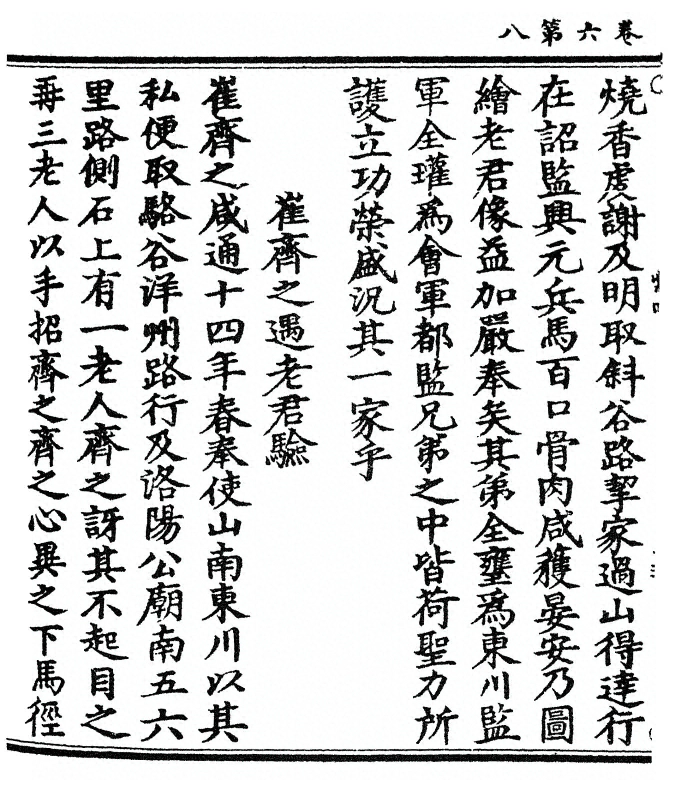 卷六第八
燒香虔謝及明取斜谷路挈家過山得達行
在詔監興元兵馬百口骨肉咸獲晏安乃圖
繪老君像益加嚴奉矣其弟全壅爲東川監
軍全瓘爲會軍都監兄弟之中皆荷聖力所
護立功榮盛況其一家乎
崔齊之遇老君驗
崔齊之咸通十四年春奉使山南東川以其
私便取駱谷洋州路行及洛陽公廟南五六
里路側石上有一老人齊之訝其不起目之
再三老人以手招齊之齊之心異之下馬徑